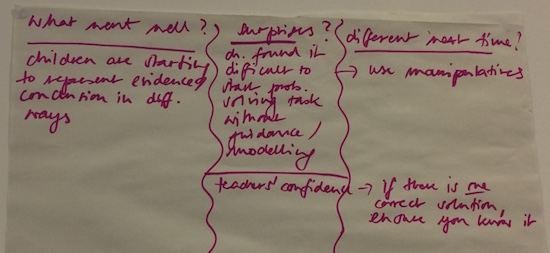 what went well?
children are starting
to represent evidenced
conclusion in diff.
ways
surprises?
ch. found it
difficult to
start prob.
solving task
without
guidance/
modelling
teachers' confidence
different next time?
→ use manipulatives
→ If there is one
correct solution,
ensure you know it